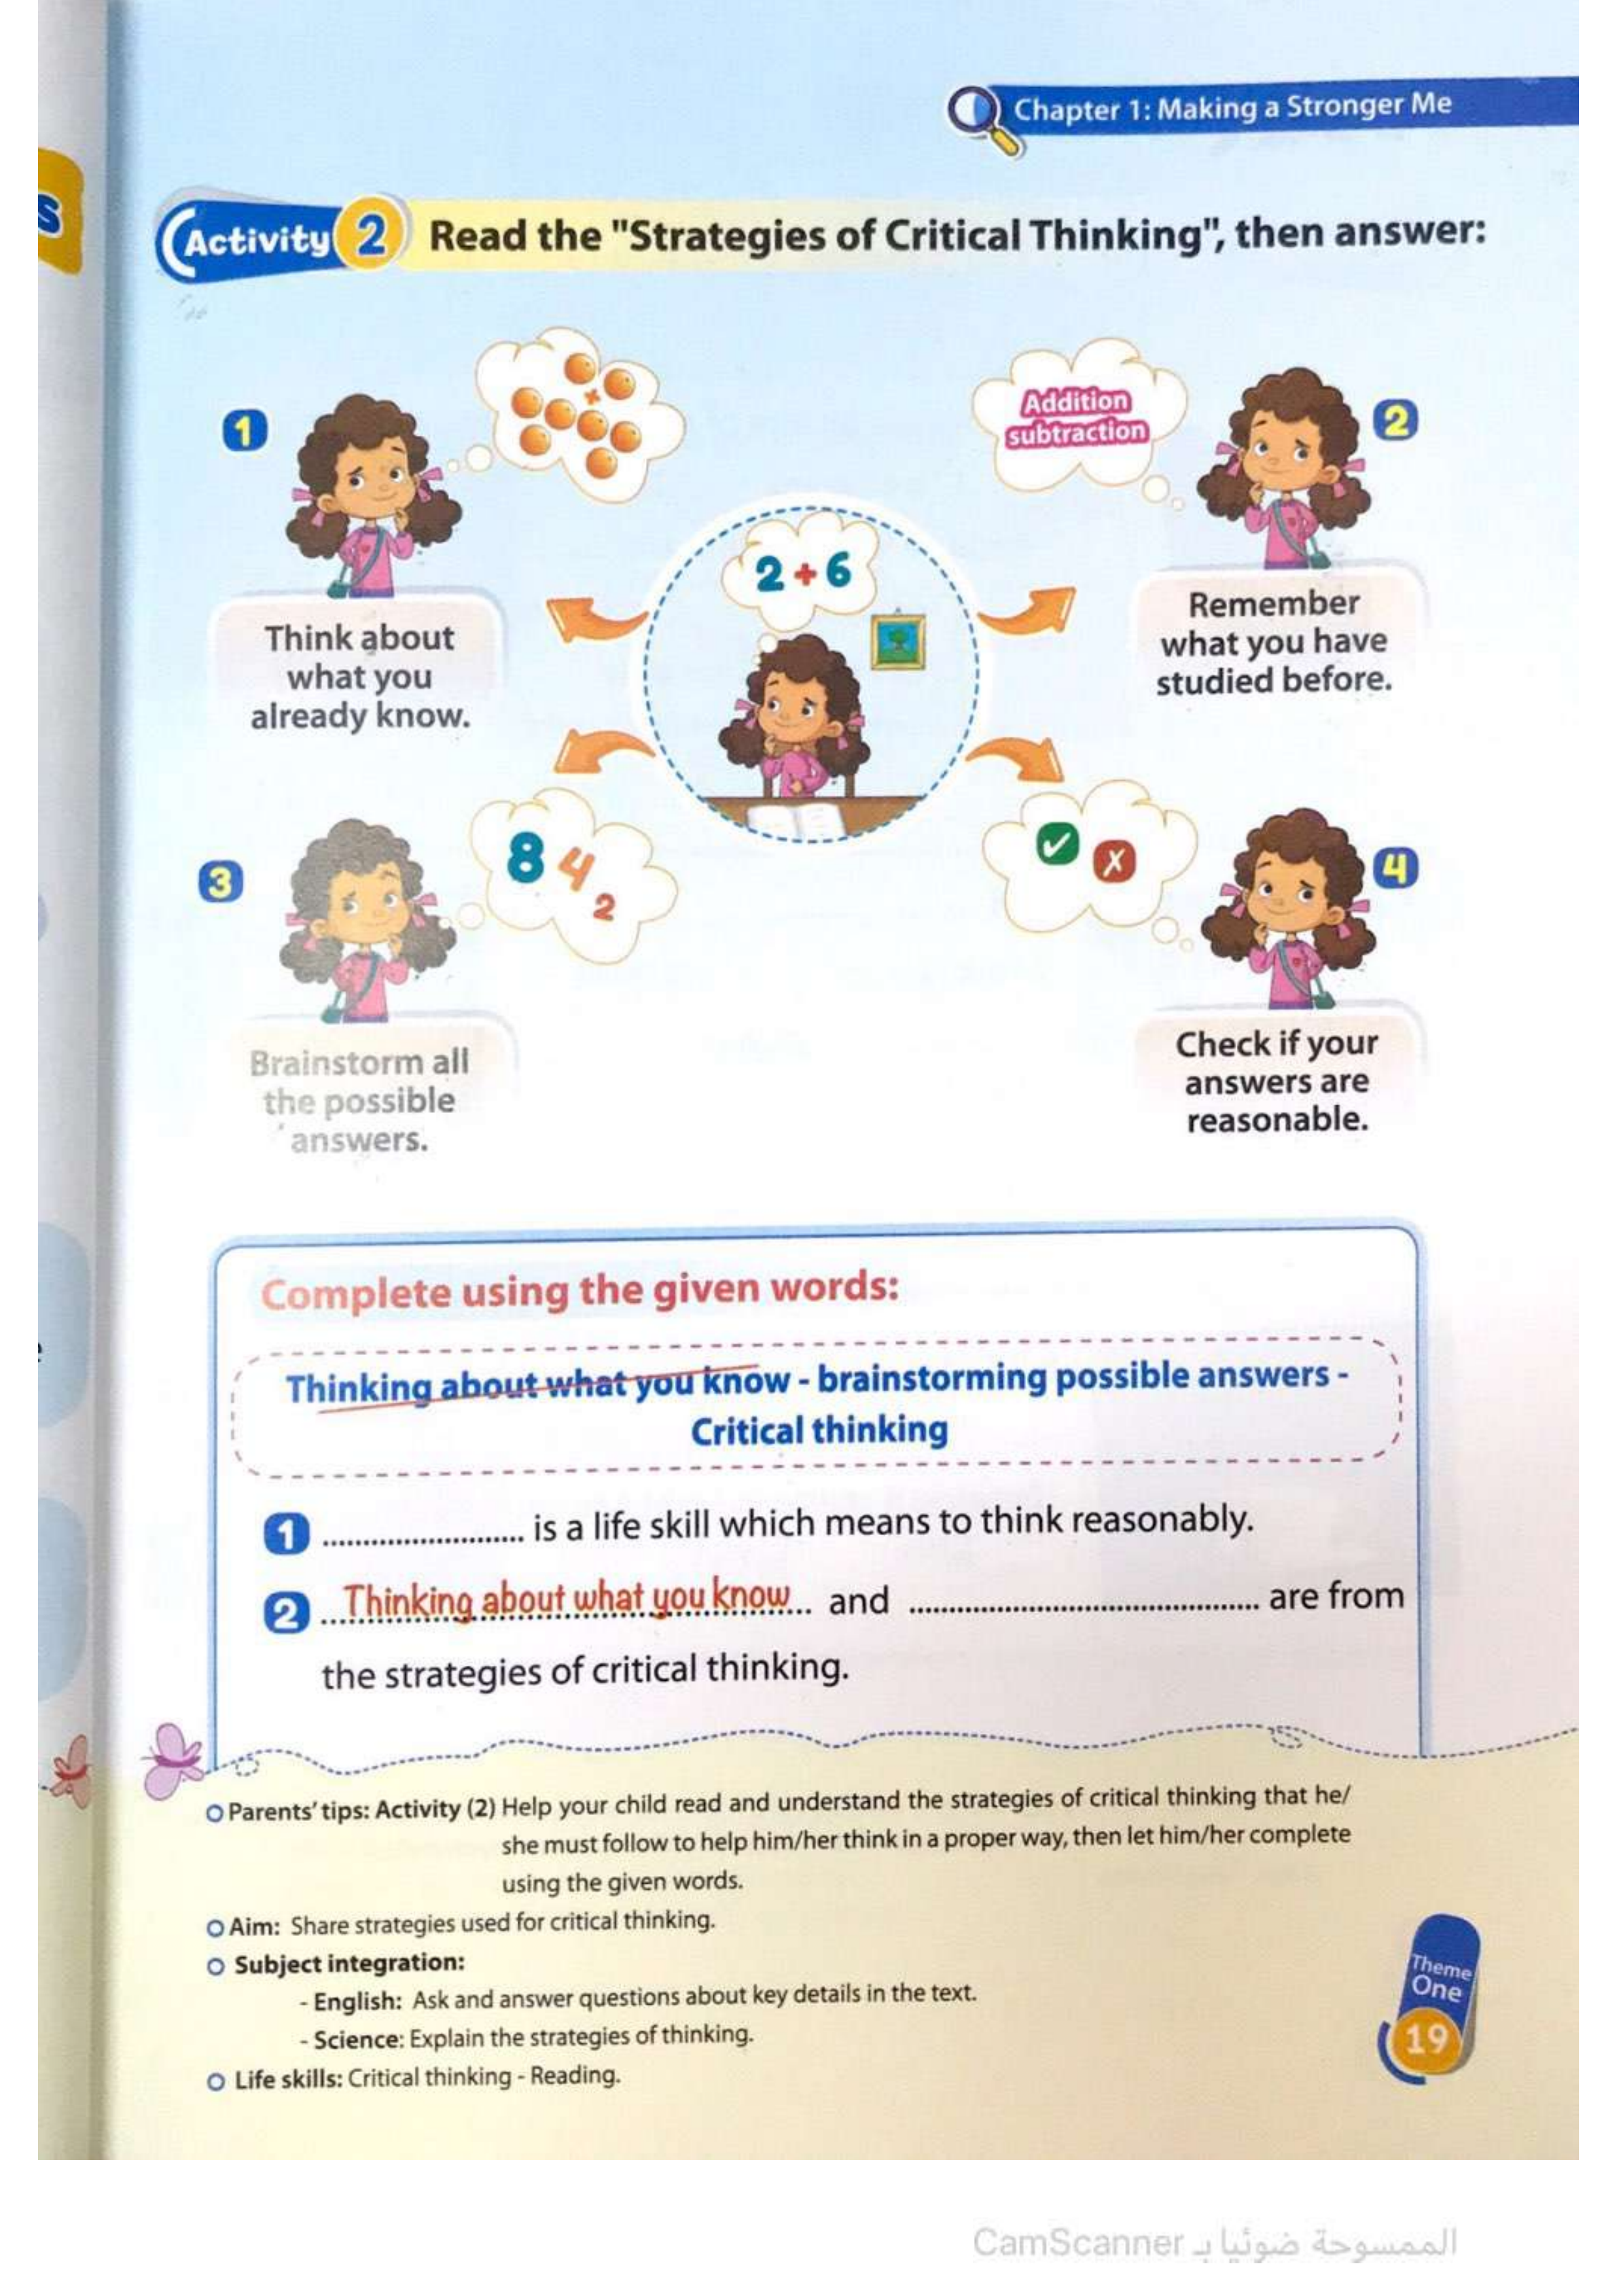 Chapter 1: Making a Stronger Me
Activity 2 Read the "Strategies of Critical Thinking", then answer:
1
Think about
what you
already know.
Addition
subtraction
2
Remember
what you have
studied before.
2 + 6
3
8 4 2
Brainstorm all
the possible
answers.
4
Check if your
answers are
reasonable.
Complete using the given words:
Thinking about what you know - brainstorming possible answers -
Critical thinking
1 ........................ is a life skill which means to think reasonably.
2 ...Thinking about what you know... and .......................................... are from
the strategies of critical thinking.
Parents' tips: Activity (2) Help your child read and understand the strategies of critical thinking that he/
she must follow to help him/her think in a proper way, then let him/her complete
using the given words.
Aim: Share strategies used for critical thinking.
Subject integration:
- English: Ask and answer questions about key details in the text.
- Science: Explain the strategies of thinking.
Life skills: Critical thinking - Reading.
Theme
One
19
الممسوحة ضوئيا بـ CamScanner